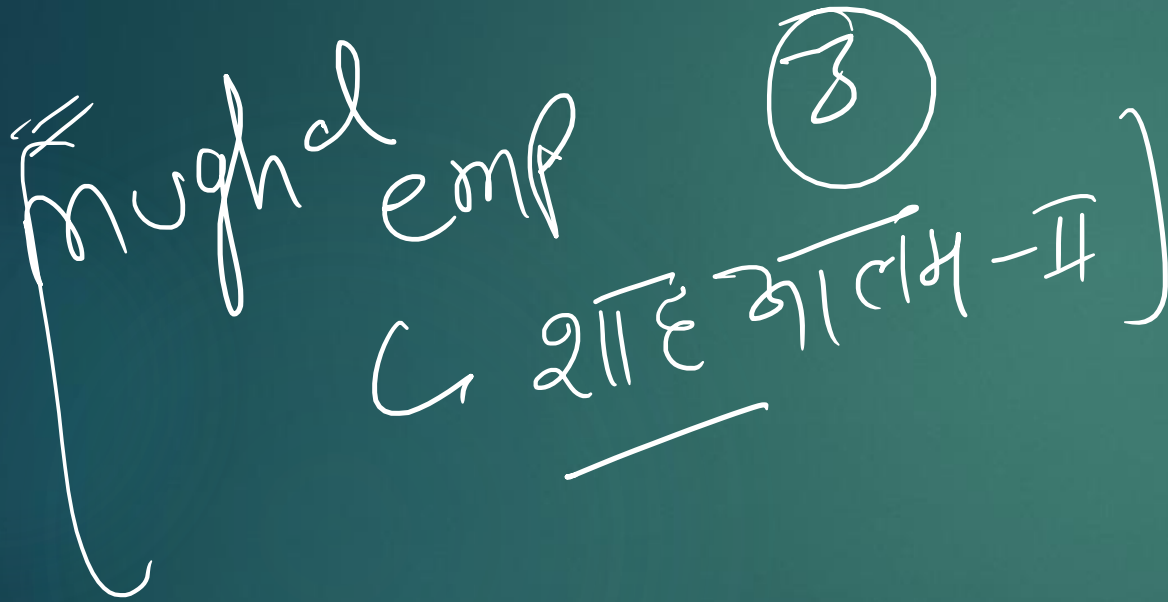 Mughal emp
3
शाह आलम-II